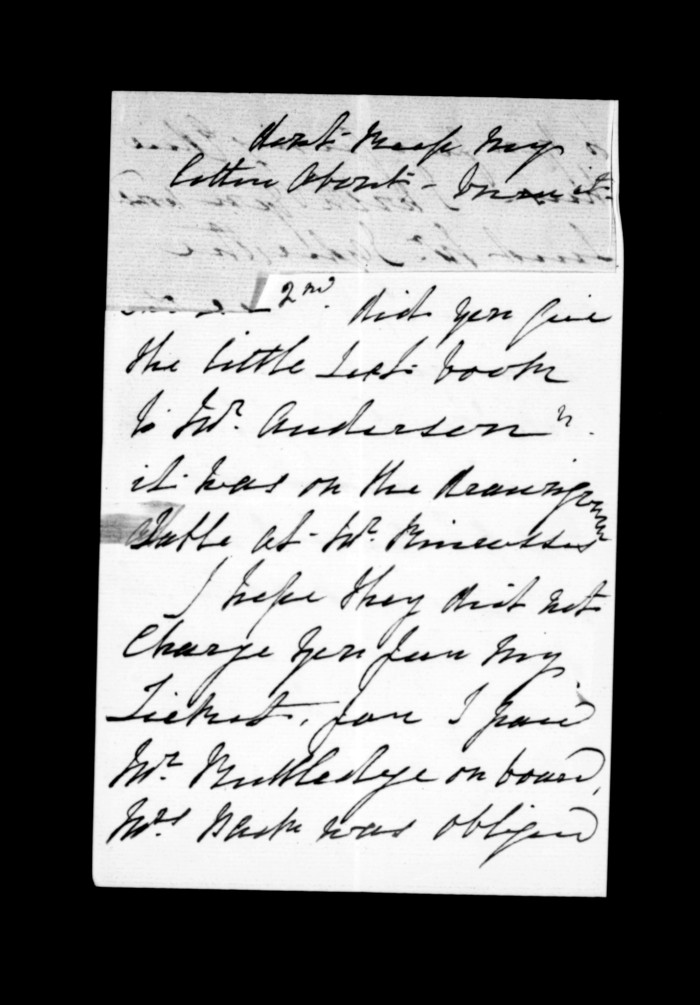 dont keep my
letter about - burn it
2nd. did you give
the little Text book
to Mr. Anderson
it was on the drawingroom
table at Mr. Kinrosses
I hope they did not
charge you for my
Ticket, for I paid
Mr. Ruttledge on board,
Mrs Bask was obliged